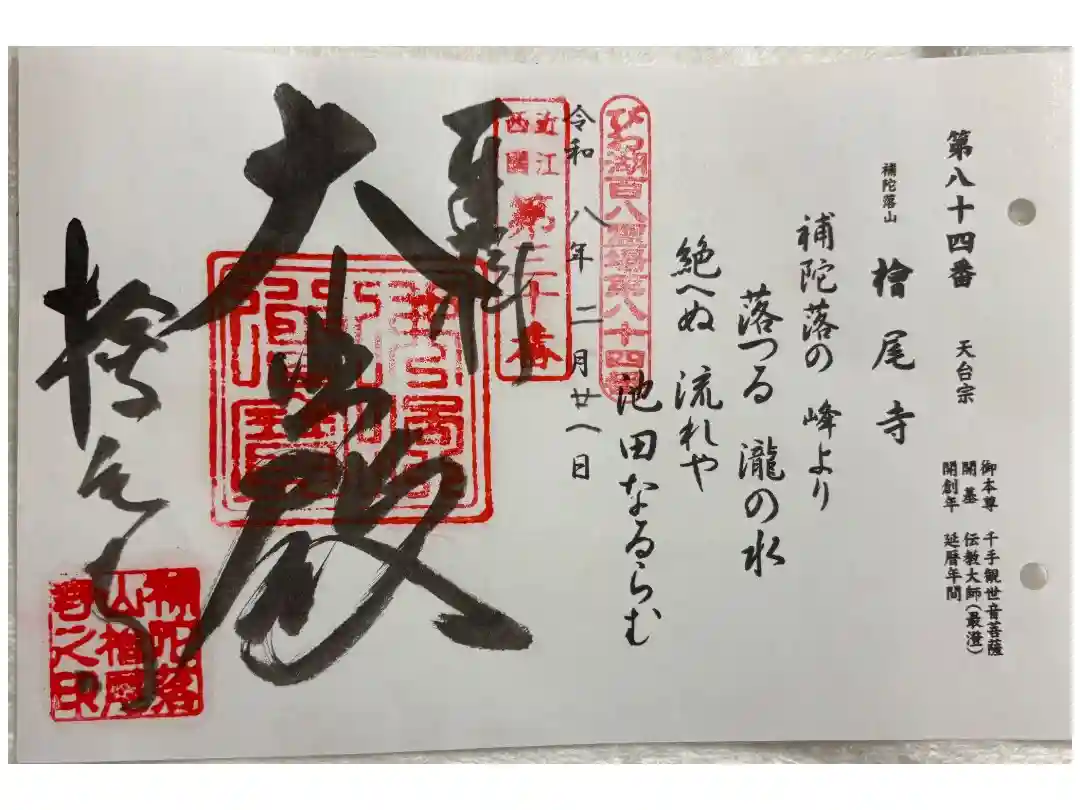 第八十四番 天台宗
補陀落山 檜尾寺
御本尊 千手観世音菩薩
開基 伝教大師(最澄)
開創年 延暦年間
補陀落の 峰より
落つる 瀧の水
絶へぬ 流れや
池田なるらむ
びわ湖百八霊場第八十四番
令和 八年 二月 廿八日
近江
西國
第三十番
奉拝
大悲殿
檜尾寺
補陀落
山檜尾
寺之印